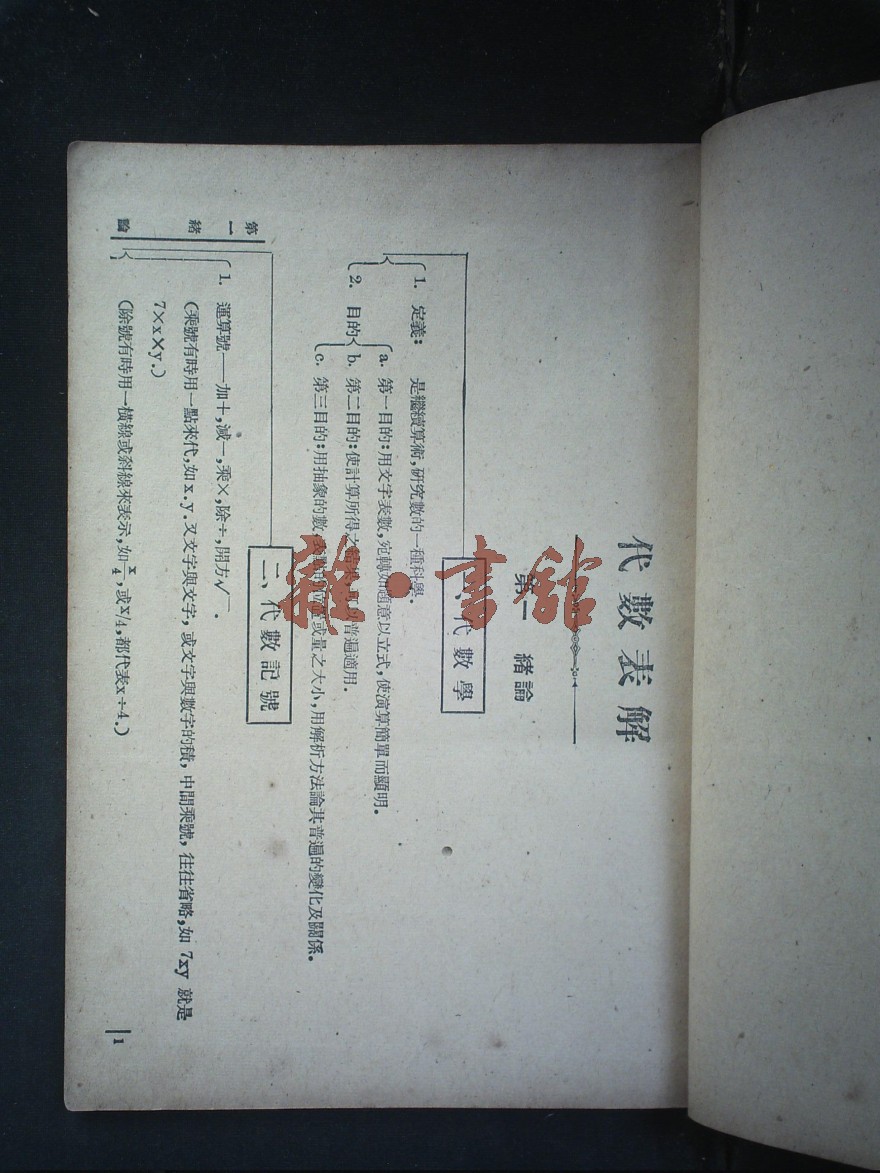 代數表解
第一 緒論
一、代數學
1. 定義： 是繼續算術，研究數的一種科學．
2. 目的
a. 第一目的：用文字表數，宛轉如意以立式，使演算簡單而顯明．
b. 第二目的：使計算所得之普遍適用．
c. 第三目的：用抽象的數，或量之大小，用解析方法論其普遍的變化及關係．
二、代數記號
1. 運算號——加＋，減－，乘×，除÷，開方√￣．
（乘號有時用一點來代，如 x.y. 又文字與文字，或文字與數字的積，中間乘號，往往省略，如 7xy 就是
7×x×y.）
（除號有時用一橫線或斜線來表示，如 x/4，或 x/4，都代表 x÷4.）
第一 緒論
1
雜·書館